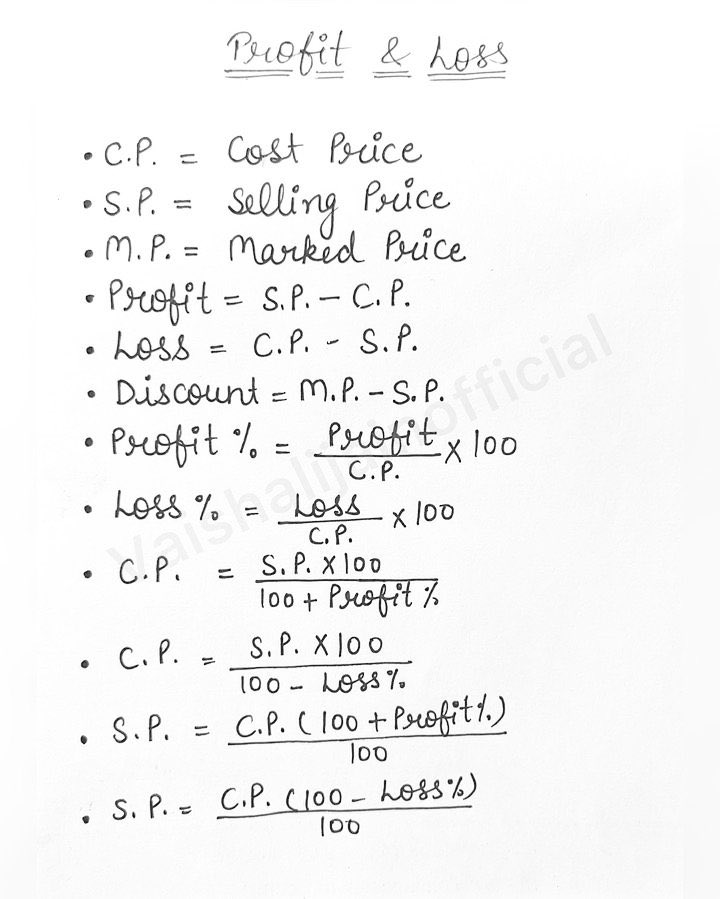 Profit & Loss
• C.P. = Cost Price
• S.P. = Selling Price
• M.P. = Marked Price
• Profit = S.P. - C.P.
• Loss = C.P. - S.P.
• Discount = M.P. - S.P.
• Profit % = Profit / C.P. × 100
• Loss % = Loss / C.P. × 100
• C.P. = S.P. × 100 / 100 + Profit %
• C.P. = S.P. × 100 / 100 - Loss %
• S.P. = C.P. (100 + Profit %) / 100
• S.P. = C.P. (100 - Loss %) / 100